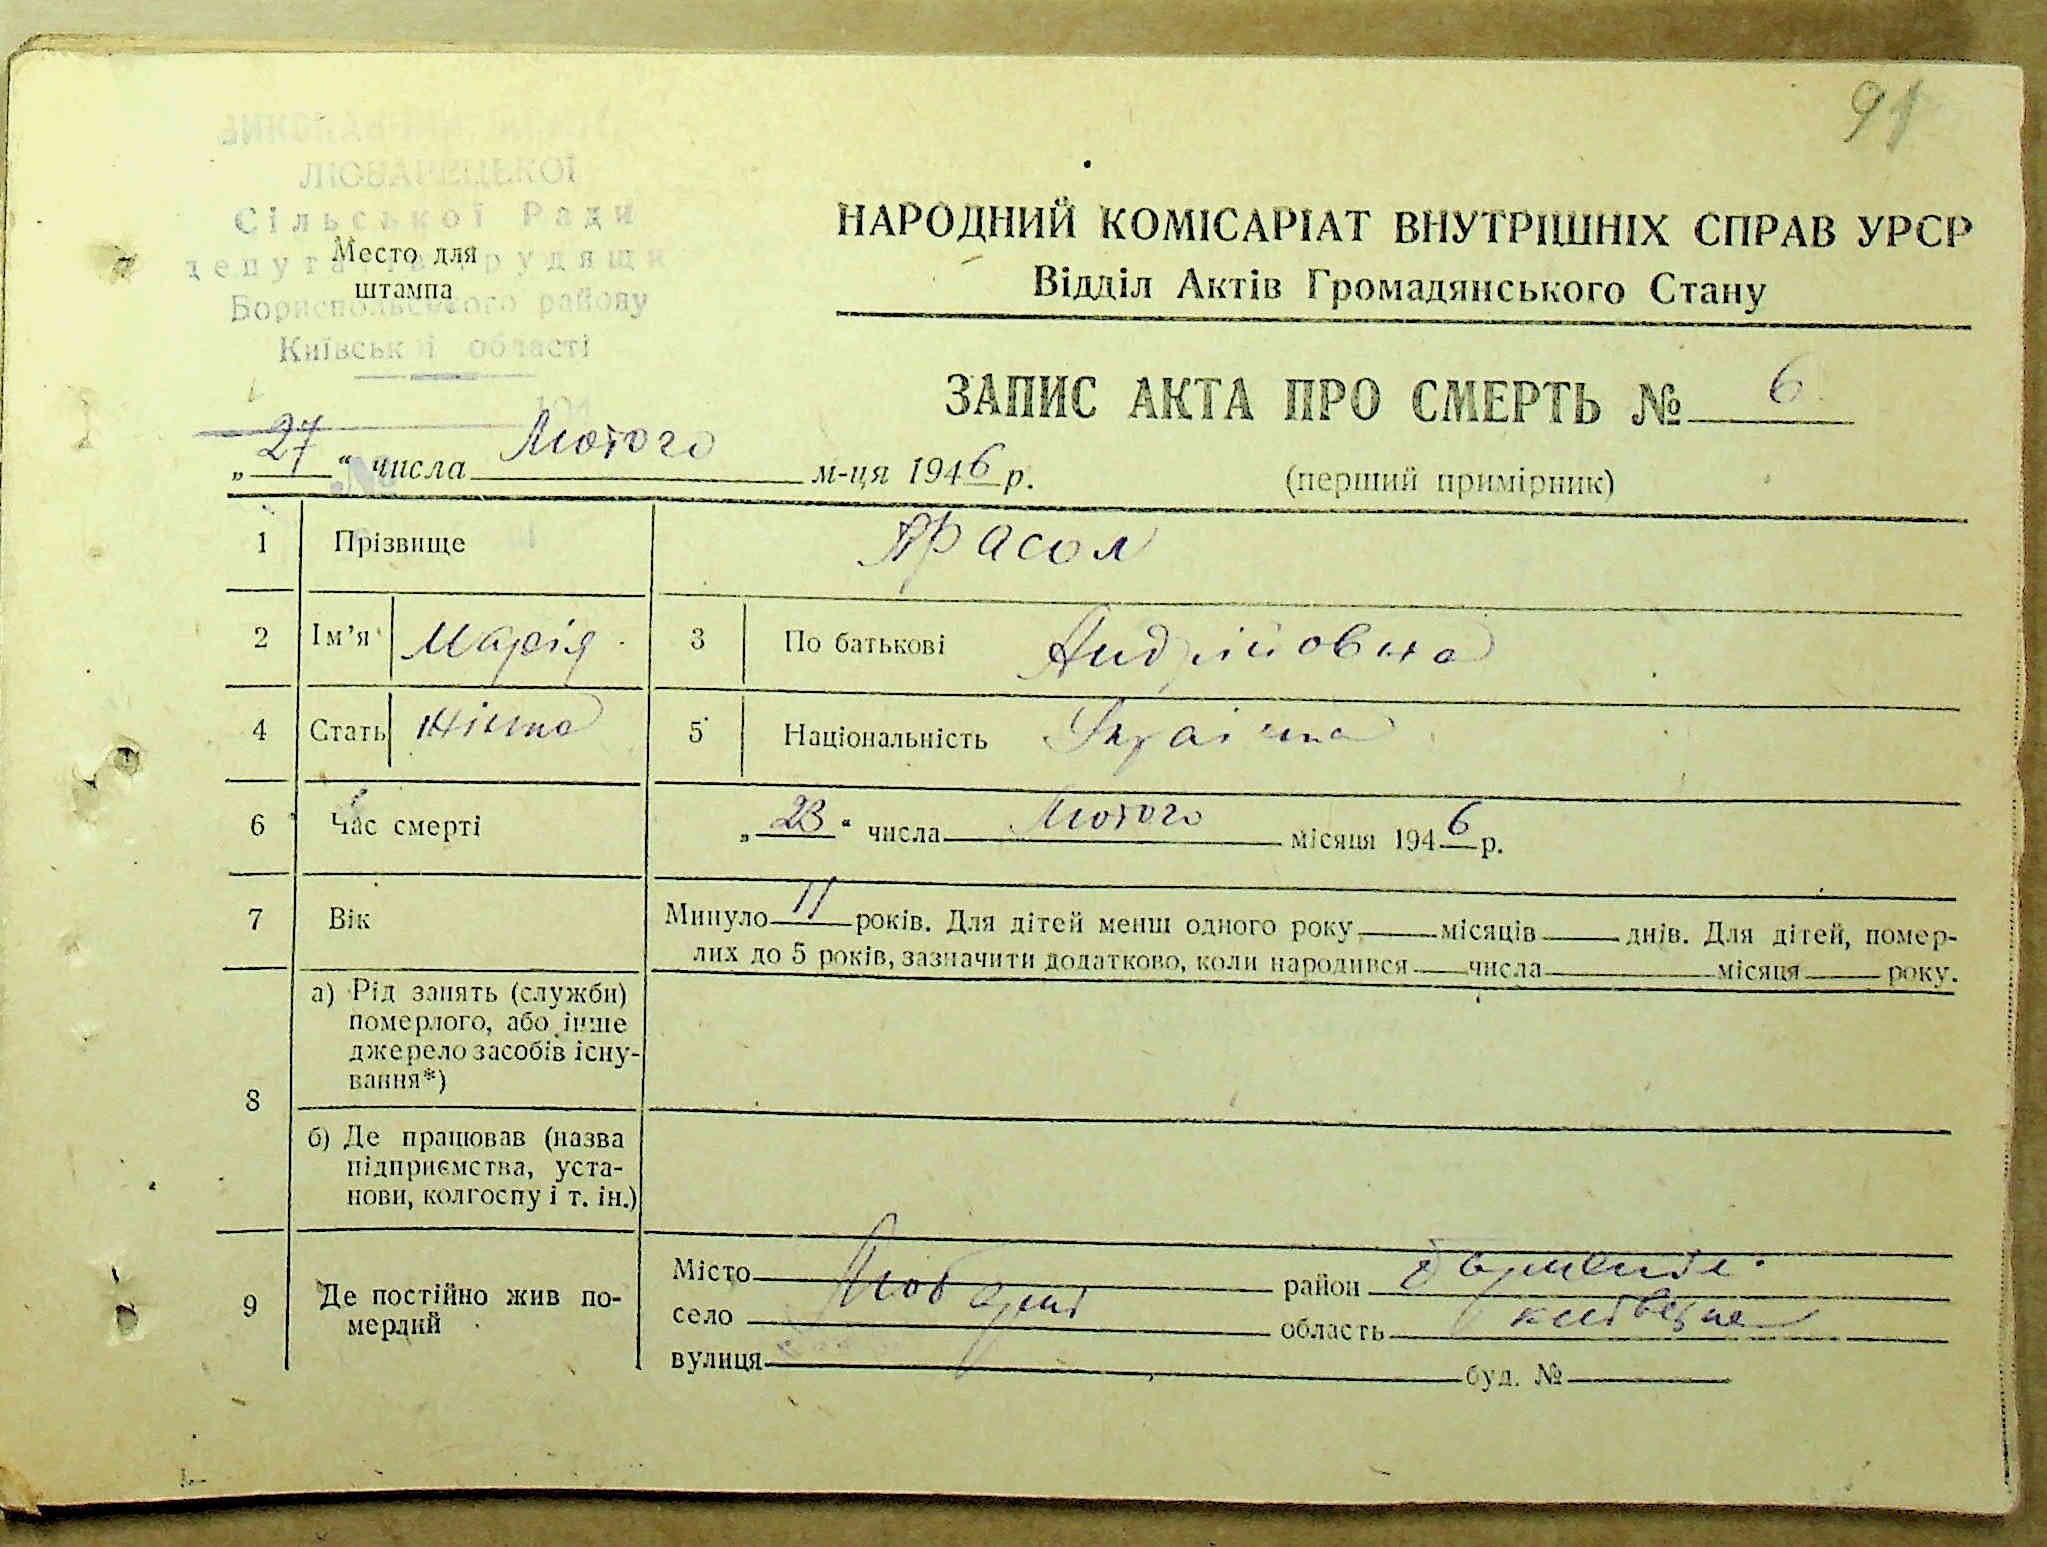 91
ЛЮБАРЕЦЬКОЇ
Сільської Ради
депутатів трудящих
Бориспольського району
Київської області
Место для
штампа
НАРОДНИЙ КОМІСАРІАТ ВНУТРІШНІХ СПРАВ УРСР
Відділ Актів Громадянського Стану
ЗАПИС АКТА ПРО СМЕРТЬ № 6
„27“ числа Лютого м-ця 1946 р.
(перший примірник)
1 Прізвище Красол
2 Ім’я Марія 3 По батькові Андрійовна
4 Стать Жінка 5 Національність Українка
6 Час смерті „23“ числа Лютого місяця 1946 р.
7 Вік Минуло 11 років. Для дітей менш одного року місяців днів. Для дітей, помер-
лих до 5 років, зазначити додатково, коли народився числа місяця року.
8 а) Рід занять (служби)
померлого, або інше
джерело засобів існу-
вання*)
б) Де працював (назва
підприємства, уста-
нови, колгоспу і т. ін.)
9 Де постійно жив по-
мерлий
Місто район
село Любарці область Київська
вулиця буд. №